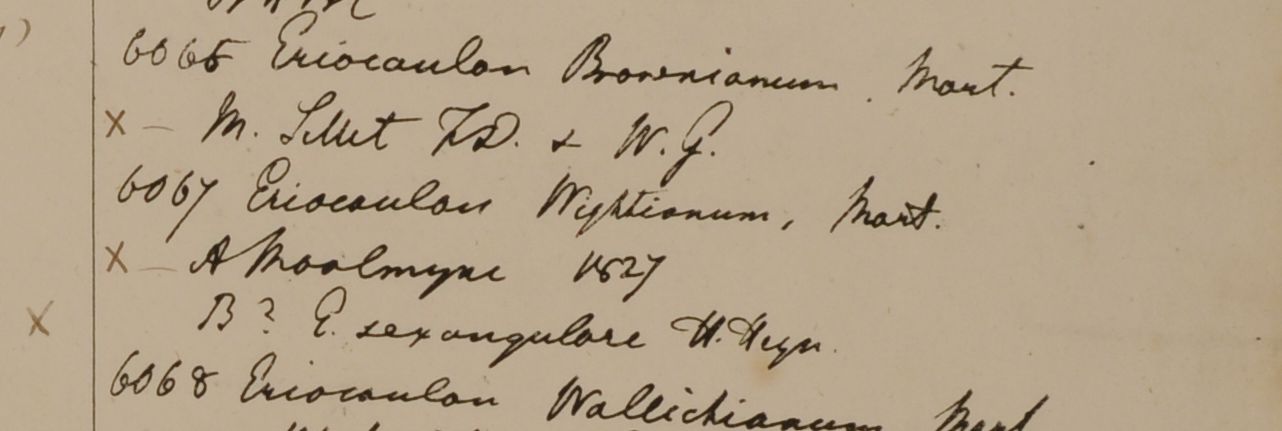 6066 Eriocaulon Brownianum. Mart.
X — M. Sillet F.D. & W.G.
6067 Eriocaulon Wightianum, Mart.
X — A Moolmyne 1827
X B? E. sexangulare H. Heyn.
6068 Eriocaulon Wallichianum Mart